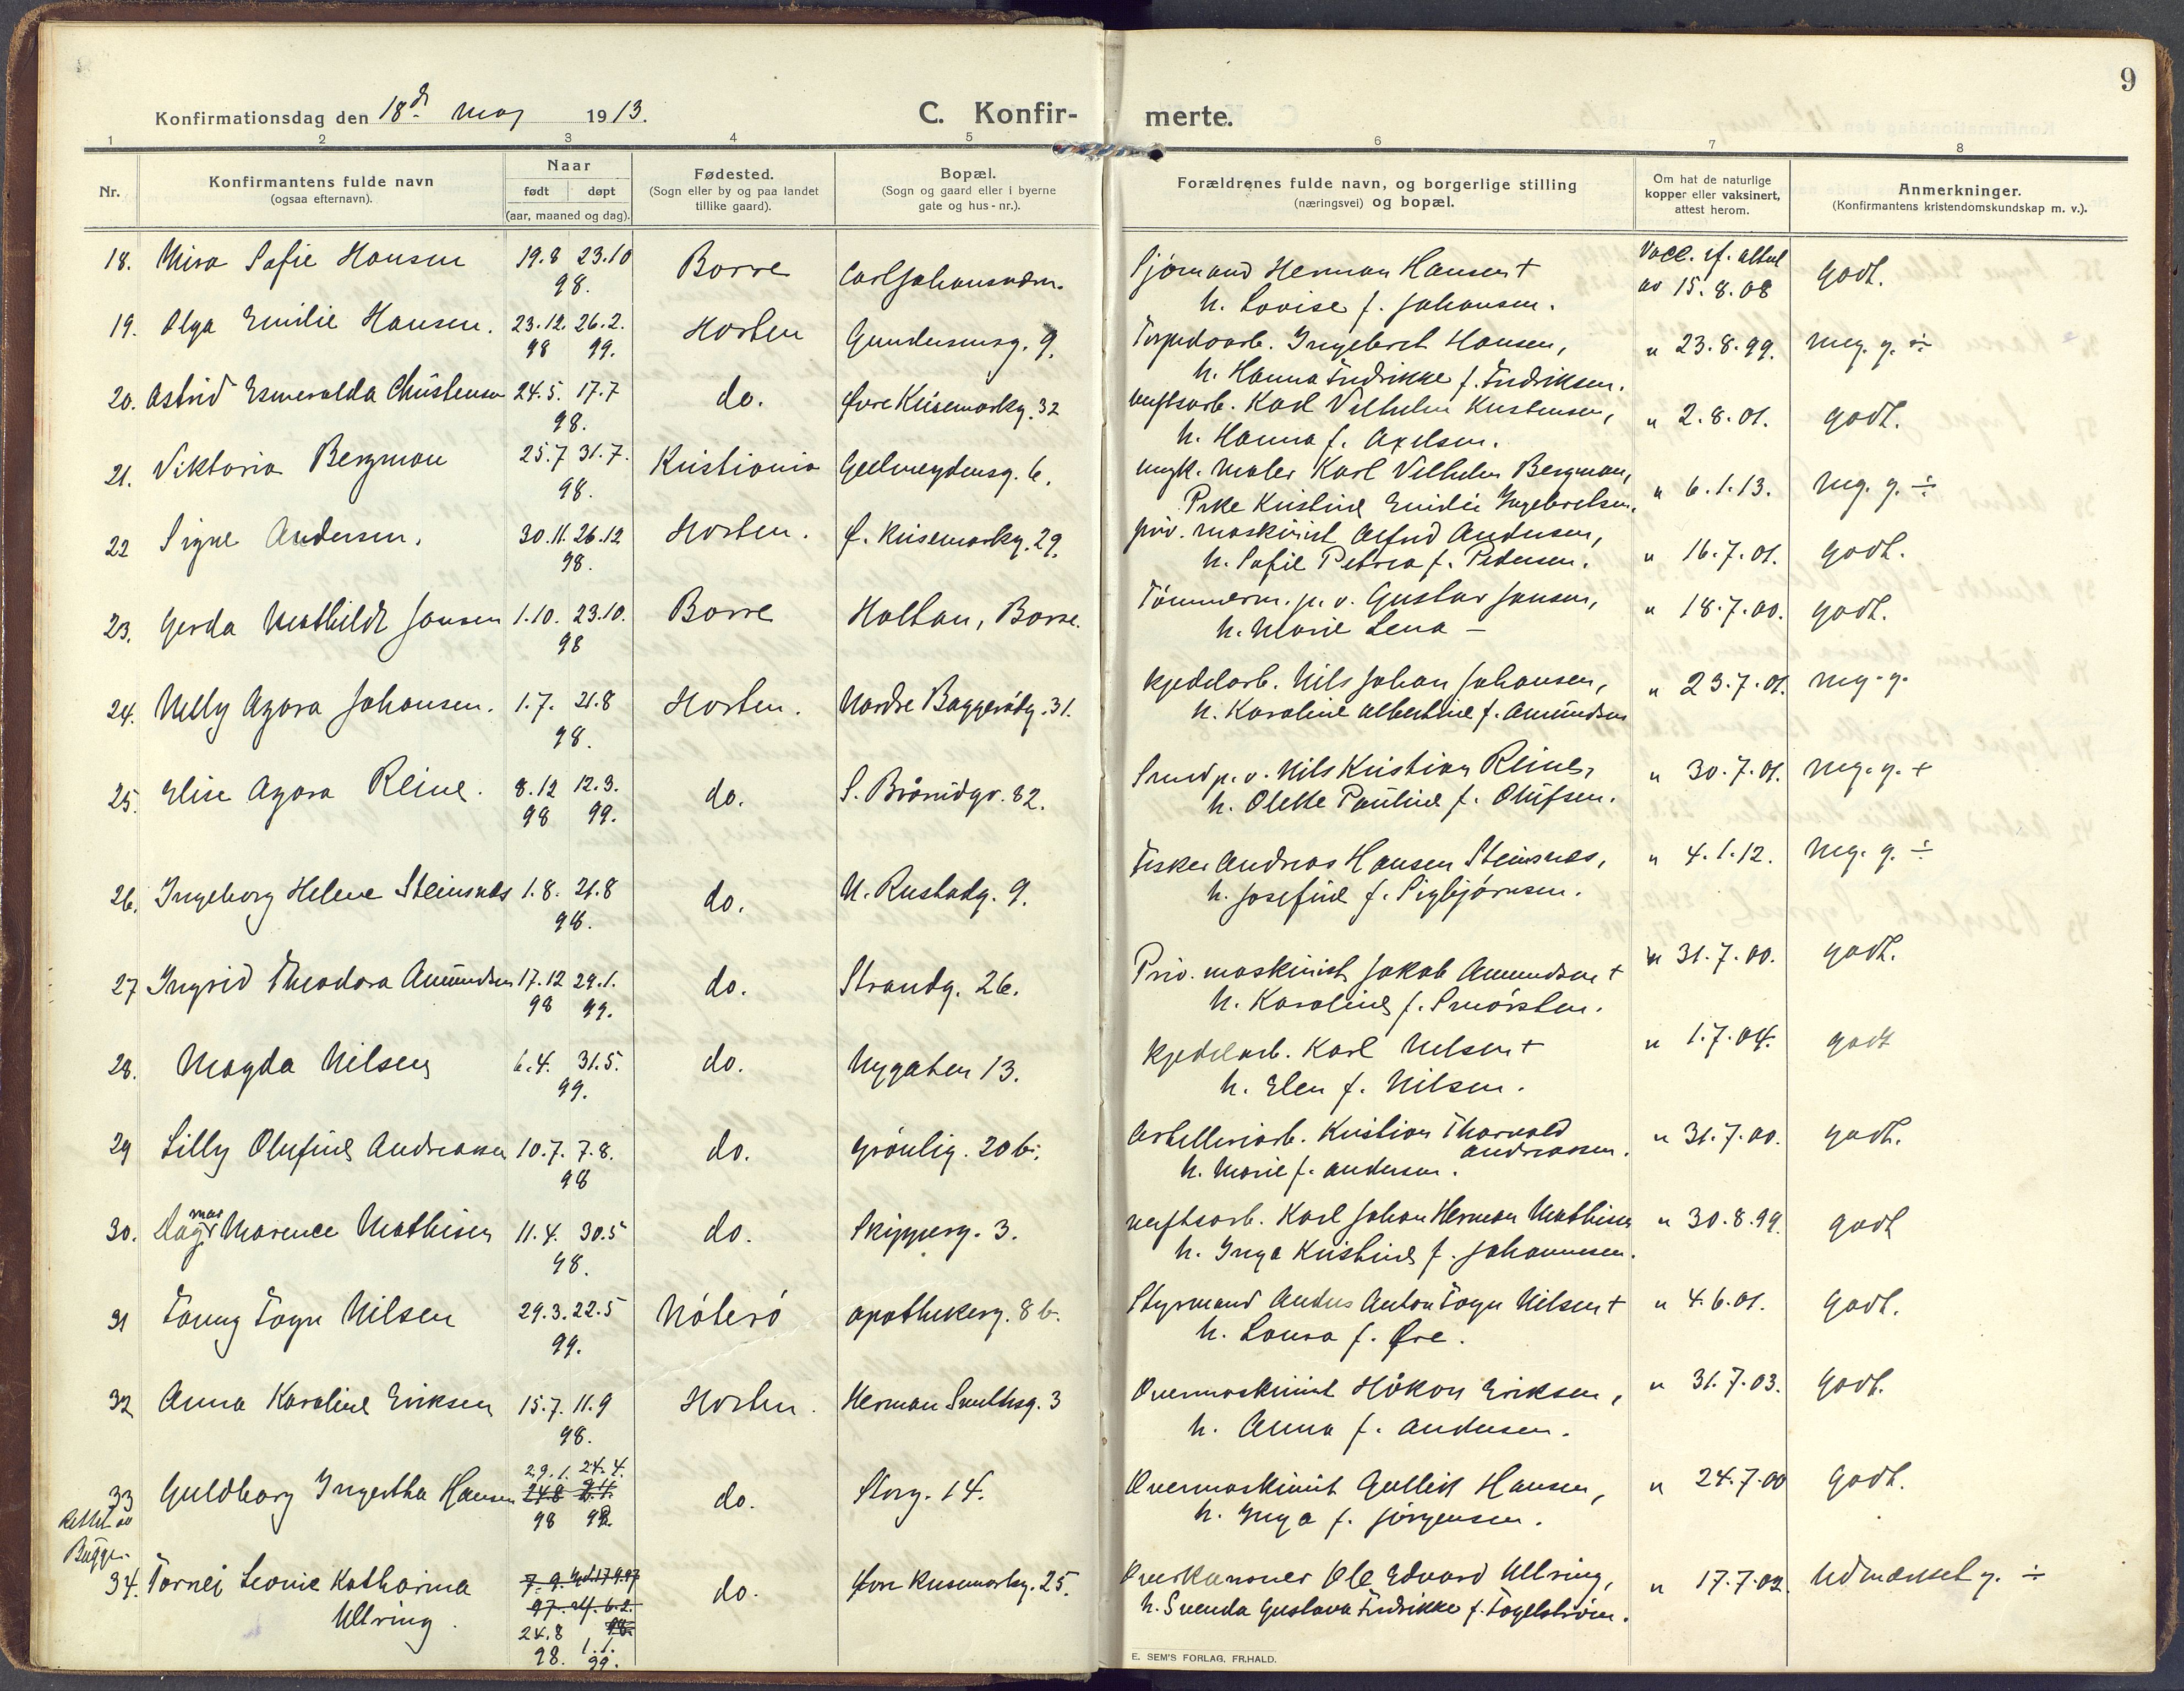 9
Konfirmationsdag den 18de maj 1913.
C. Konfirmerte.
1 2 3 4 5 6 7 8
Nr.
Konfirmantens fulde navn
(ogsaa efternavn).
Naar
født døpt
(aar, maaned og dag).
Fødested.
(Sogn eller by og paa landet
tillike gaard).
Bopæl.
(Sogn og gaard eller i byerne
gate og hus-nr.).
Forældrenes fulde navn, og borgerlige stilling
(næringsvei) og bopæl.
Om hat de naturlige
kopper eller vaksinert,
attest herom.
Anmerkninger.
(Konfirmantens kristendomskundskap m. v.).
18. Mira Sofie Hansen 19.8 23.10 Borre Carljohansværn. Sjømand Herman Hansen + Vacc. if. attest godt.
98. h. Lovise f. Johansen. av 15.8.08
19. Olga Emilie Hansen. 23.12. 26.2. Horten Gundersensg. 9. Torpedoarb. Ingebret Hansen, " 23.8.99. meg. g. ÷
98 99. h. Hanna Fredrikke f. Fredriksen.
20. Astrid Esmeralda Christensen 24.5. 17.7 do. Øvre Keisemarkg. 32 verftsarb. Karl Vilhelm Kristensen, " 2.8.01. godt.
98. h. Hanna f. Axelsen.
21. Viktoria Bergman 25.7 31.7. Kristiania Geelmeydensg. 6. ungk. maler Karl Vilhelm Bergman, " 6.1.13. Mg. g. ÷
98. Pike Kristine Emilie Ingebretsen.
22 Signe Andersen. 30.11. 26.12 Horten. Ø. Keisemarkg. 29. priv. maskinist Alfred Andersen, " 16.7.01. godt.
98. h. Sofie Petrea f. Pedersen.
23. Gerda Mathilde Jansen 1.10. 23.10. Borre Holtan, Borre. Tømmerm. p. v. Gustav Jansen, " 18.7.00. godt.
98 h. Marie Lena —
24. Nelly Agora Johansen. 1.7. 21.8 Horten. Nordre Baggerødg. 31. Kjedelarb. Nils Johan Johansen, " 23.7.01. mg. g.
98. h. Karoline Albertine f. Amundsen
25. Elise Agora Reine. 8.12 12.3. do. S. Bråridgr. 82. Smed p. v. Nils Kristian Reine, " 30.7.01. mg. g. +
98 99. h. Olette Pauline f. Olufsen.
26. Ingeborg Helene Steinsnæs 1.8. 21.8 do. N. Rustadg. 9. Fisker Andreas Hansen Steinsnæs, " 4.1.12. Mg. g. ÷
98. h. Josefine f. Sigbjørnsen.
27 Ingrid Theodora Amundsen 17.12 29.1. do. Strandg. 26. Priv. maskinist Jakob Amundsen + " 31.7.00. godt.
98 99. h. Karoline f. Smørsten.
28. Magda Nilsen 6.4. 31.5. do. Nygaten 13. Kjedelarb. Karl Nilsen + " 1.7.04. godt
99. h. Elen f. Nilsen.
29 Lilly Olufine Andreassen 10.7. 7.8. do. Grønlig. 20 b. Artelleriarb. Kristian Thorvald Andreassen. " 31.7.00. godt.
98 h. Marie f. Andersen.
30. Dagmar Marence Mathisen 11.4. 30.5 do. Skipperg. 3. verftsarb. Karl Johan Herman Mathisen " 30.8.99. godt
98. h. Inga Kristine f. Johannesen.
31 Fanny Fagn Nilsen 29.3. 22.5 Nøterø Apothekerg. 8 b. Styrmand Anders Anton Fagn Nilsen + " 4.6.01. godt.
99. h. Laura f. Øre.
32 Anna Karoline Eriksen 15.7. 11.9 Horten. Herman Smithsg. 3 Overmaskinist Håkon Eriksen, " 31.7.03. godt.
98. h. Anna f. Andersen.
29.1. 24.4.
33 Guldborg Ingertha Hansen 24.8 do. Storg. 14. Overmaskinist Gullik Hansen, " 24.7.00 godt.
Rettet av 98 h. Inga f. Jørgensen.
Bugge.
34. Tornei Leonie Katharina 7.9. do. Øvre Keisemarkg. 25. Overkanoner Ole Edvard Ullring, " 17.7.02. Udmærket g. ÷
Ullring. 97. 6.2. 98. h. Svenda Gustava Fredrikke f. Fagelstrøm.
24.8
98. 1.1. 99.
E. SEM'S FORLAG, FR.HALD.